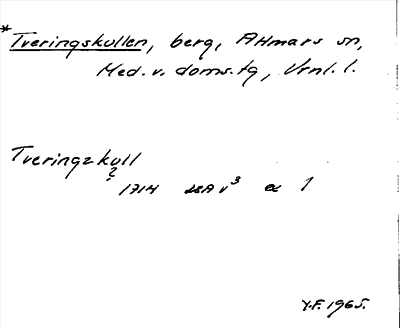 * Tveringskullen, berg, Attmars sn,
Med. v. doms. tg, Vrnl. l.
Tveringzkull
?
1714 LSA v³ α 1
Y.F. 1965.